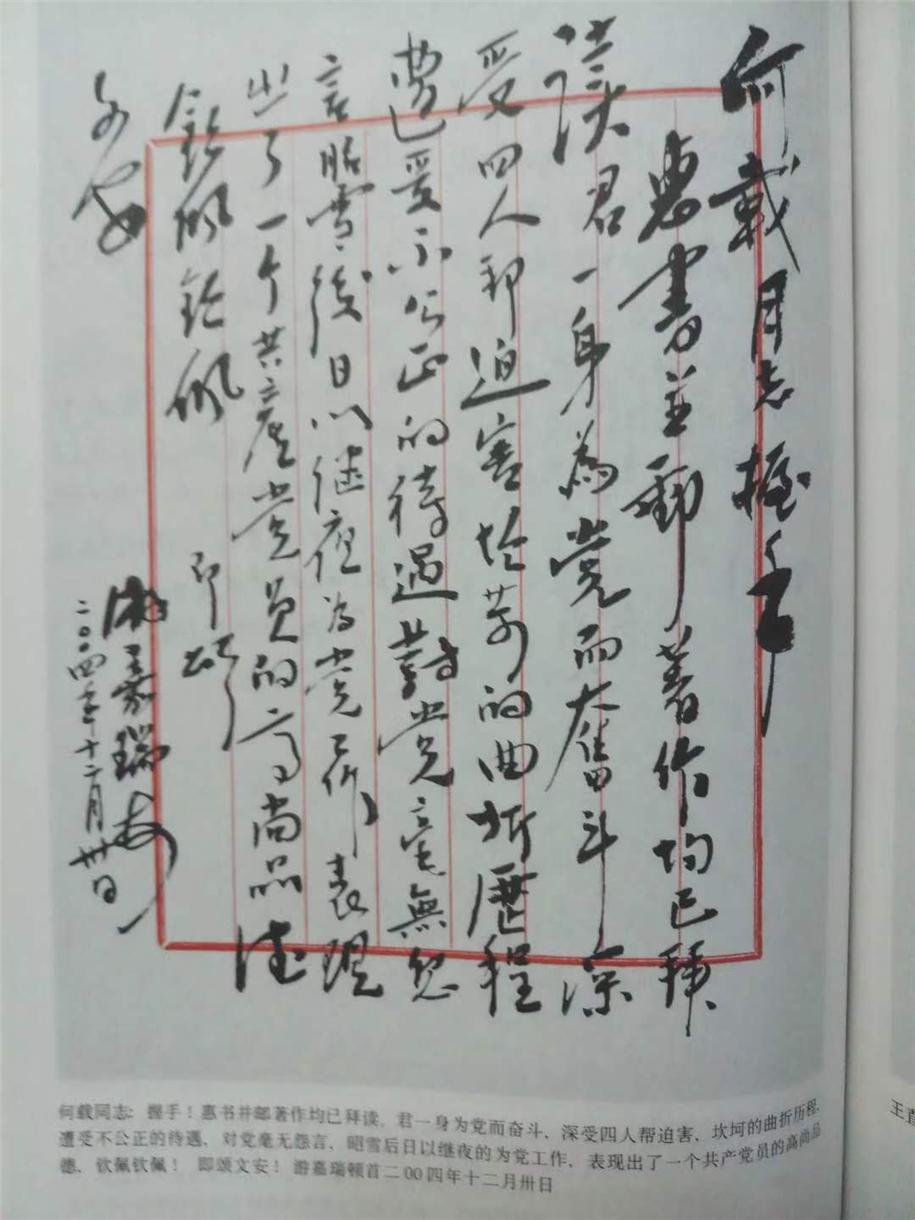 何载同志握手
惠书并邮著作均已拜
读君一身为党而奋斗深
受四人邦迫害坎苛的曲折历程
遭受不公正的待遇对党毫无怨
言昭雪后日以继夜为党工作表现
出了一个共产党员的高尚品德
钦佩钦佩 即颂
文安
游嘉瑞顿首
二〇〇四年十二月卅日
何载同志:握手!惠书并邮著作均已拜读,君一身为党而奋斗,深受四人帮迫害,坎坷的曲折历程,
遭受不公正的待遇,对党毫无怨言,昭雪后日以继夜的为党工作,表现出了一个共产党员的高尚品
德,钦佩钦佩! 即颂文安!游嘉瑞顿首二00四年十二月卅日